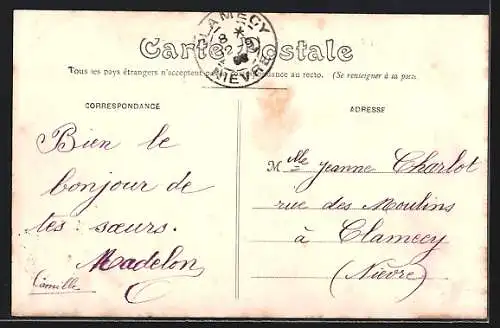 CLAMECY
NIÈVRE
Carte Postale
Tous les pays étrangers n'acceptent pas la correspondance au recto. (Se renseigner à la poste
CORRESPONDANCE
ADRESSE
Bien le
bonjour de
tes sœurs.
Madelon
Camille
Mlle Jeanne Charlot
rue des Moulins
à Clamecy
(Nièvre)